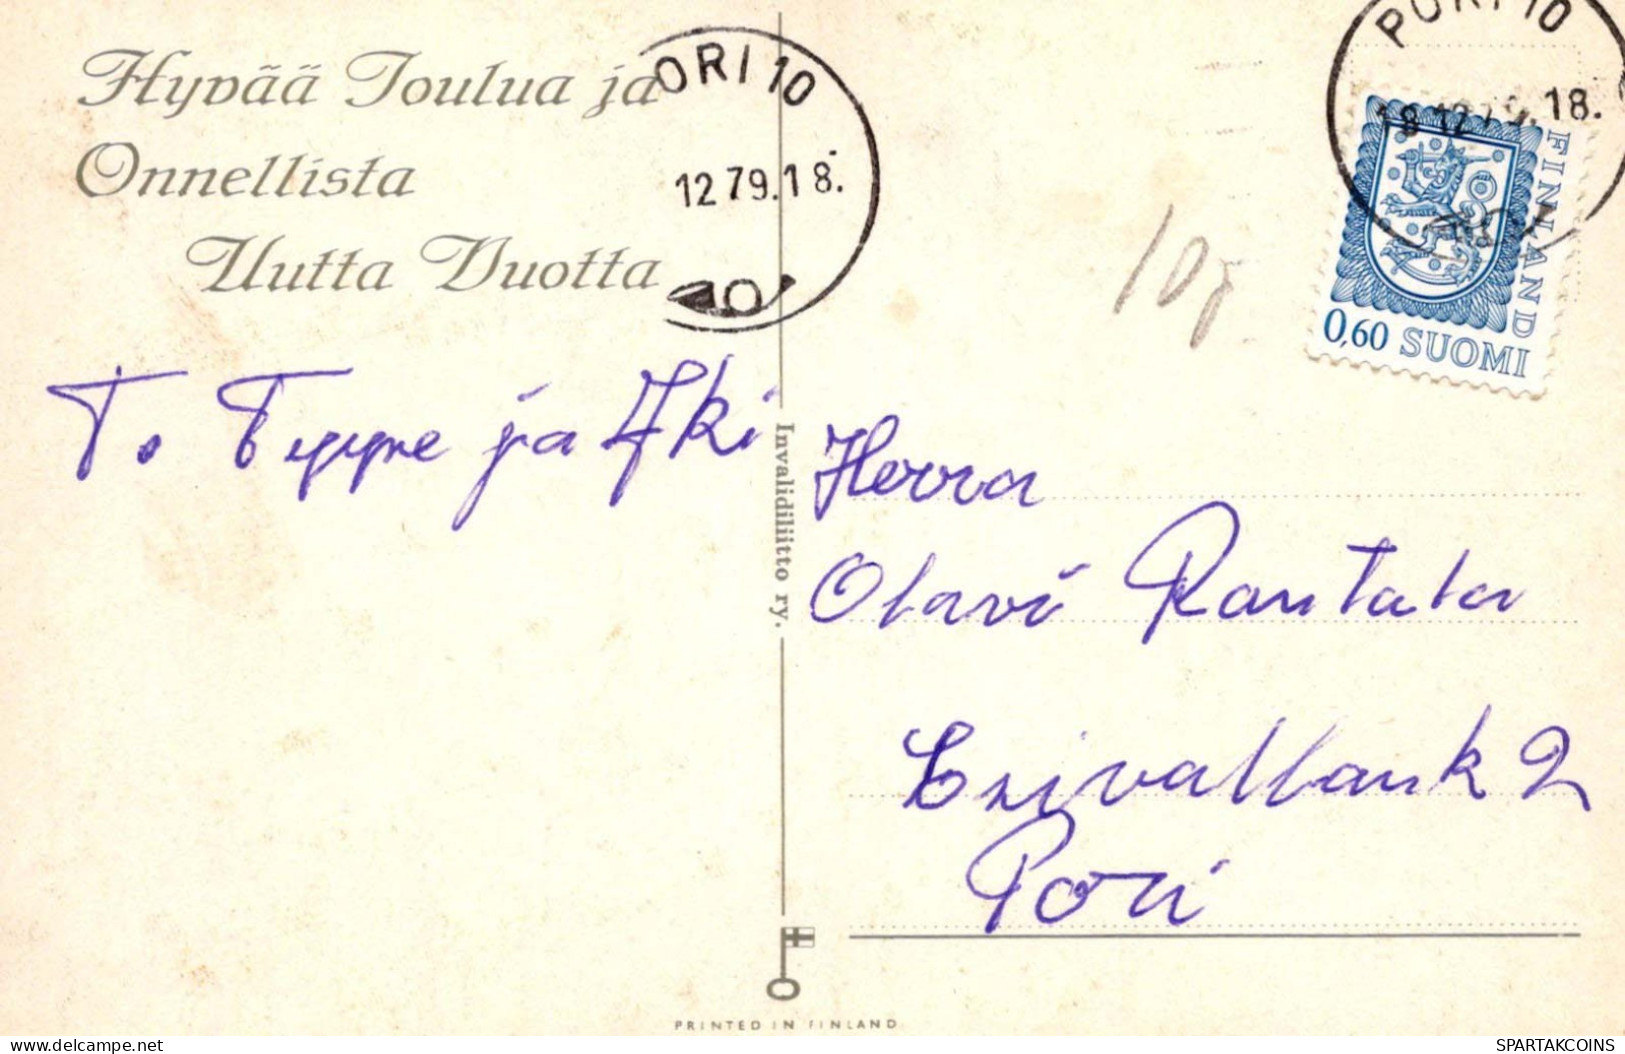 Hyvää Joulua ja
Onnellista
Uutta Vuotta
ORI 10
12 79.18.
PORI 10
18 12 79.18.
FINLAND
0,60 SUOMI
T. Teppe ja Aki
Invalidiliitto ry.
Herra
Olavi Rantala
Pori
PRINTED IN FINLAND
www.delcampe.net
SPARTAKCOINS